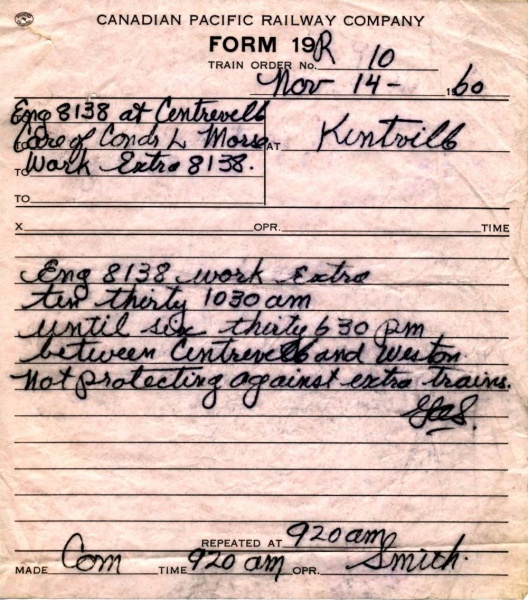 CANADIAN PACIFIC RAILWAY COMPANY
FORM 19R
TRAIN ORDER No. 10
Nov 14 - 1960
TO Eng 8138 at Centreville
TO Care of Condr L Morse AT Kentville
TO Work Extra 8138.
TO
X OPR. TIME
Eng 8138 work Extra
ten thirty 1030 am
until six thirty 630 pm
between Centreville and Weston
Not protecting against extra trains.
REPEATED AT 920 am
MADE Com TIME 920 am OPR. Smith.